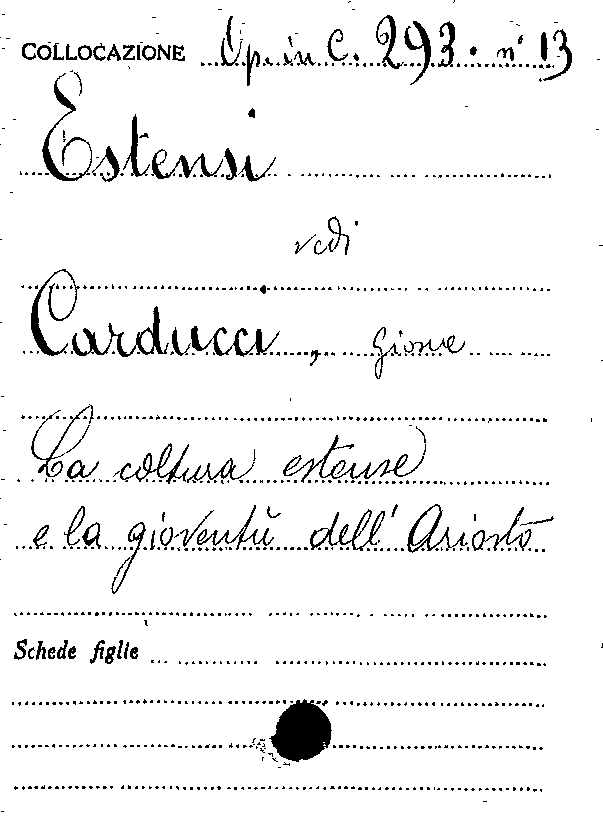 COLLOCAZIONE Op. in C. 293. n° 13
Estensi
vedi
Carducci, Giosue
La coltura estense
e la gioventù dell' Ariosto
Schede figlie